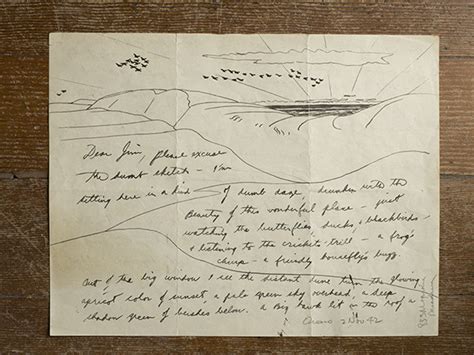 Dear Jim, please excuse
the dumb sketch – I'm
sitting here in a kind of dumb daze, drunken with the
Beauty of this wonderful place – just
watching the butterflies, ducks, & blackbirds –
& listening to the crickets trill – a frog's
chirp – a friendly housefly's buzz.
Out of the big window I see the distant dune turn the glowing
apricot color of sunset, a pale green sky overhead, a deep
shadow green of bushes below. a Big hawk lit on the roof a
2 Nov 42